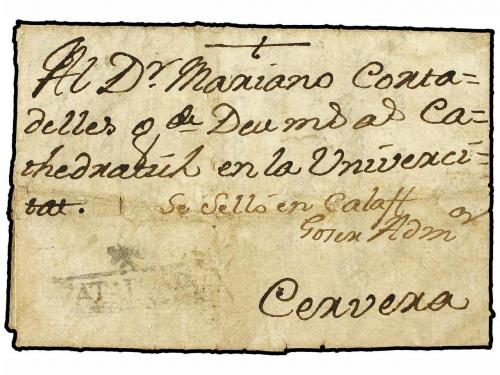 Al Dr. Mariano Corta=
delles q. de Deu md. ad Ca=
thedratich en la Univerci=
tat.
Se Selló en Calaff
Admor
Cervera